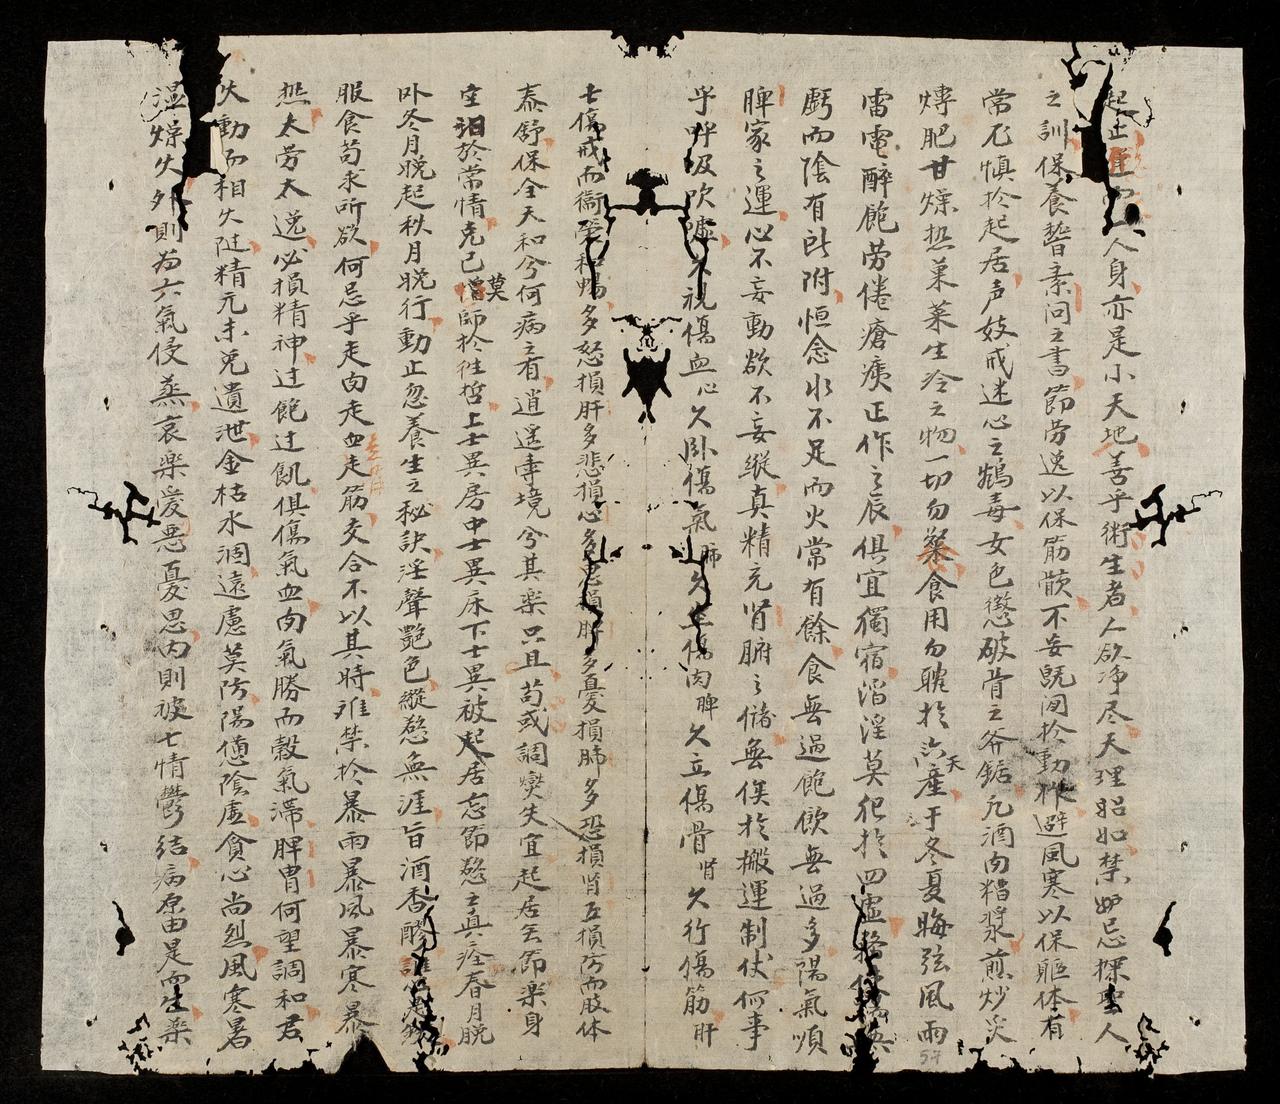 人身亦是小天地善乎術生者人欲净尽天理昭如禁忌探聖人
之訓保養督素问之書節劳逸以保筋骸不妄既闭於動作避風寒以保軀体有
常尤慎於起居声妓戒迷心之鴆毒女色懲破骨之斧鋸兀酒肉糟漿煎炒炙
煿肥甘燥热菓菜生冷之物一切勿粲食用勿聴於六天産于冬夏晦弦風雨
雷電醉飽劳倦瘡痍正作之辰俱宜獨宿滔淫莫犯於四虚
虧而陰有所附恒念水不足而火常有餘食無過飽飲無過多陽氣順
脾家之運心不妄動欲不妄縱真精充肾腑之儲無俟於搬運制伏何事
乎呼吸吹嘘久視傷血心久卧傷氣肺久坐傷肉脾久立傷骨肾久行傷筋肝
七傷戒而衞榮和暢多怒損肝多悲損心多思損脾多憂損肺多恐損肾五損防而肢体
泰舒保全天和兮何病之有逍遥壽境兮其楽只且苟或調爕失宜起居丟節楽身
空汨於常情克己莫憎師於往哲上士異房中士異床下士異被起居忘節慾之真詮春月晚
卧冬月晚起秋月晚行動止忽養生之秘訣淫聲艷色縱慾無涯旨酒香醪
服食苟求所欲何忌乎走肉走血走筋交合不以其時难禁於暴雨暴风暴寒暴
热太劳太逸必損精神过飽过飢俱傷氣血肉氣勝而穀氣滞脾胃何望調和君
火動而相火随精元未免遺泄金枯水涸遠慮莫防陽憊陰虚貪心尚烈風寒暑
湿燥火外則为六氣侵蒸哀楽爱惡憂思内則被七情鬱结病原由是而生薬
57